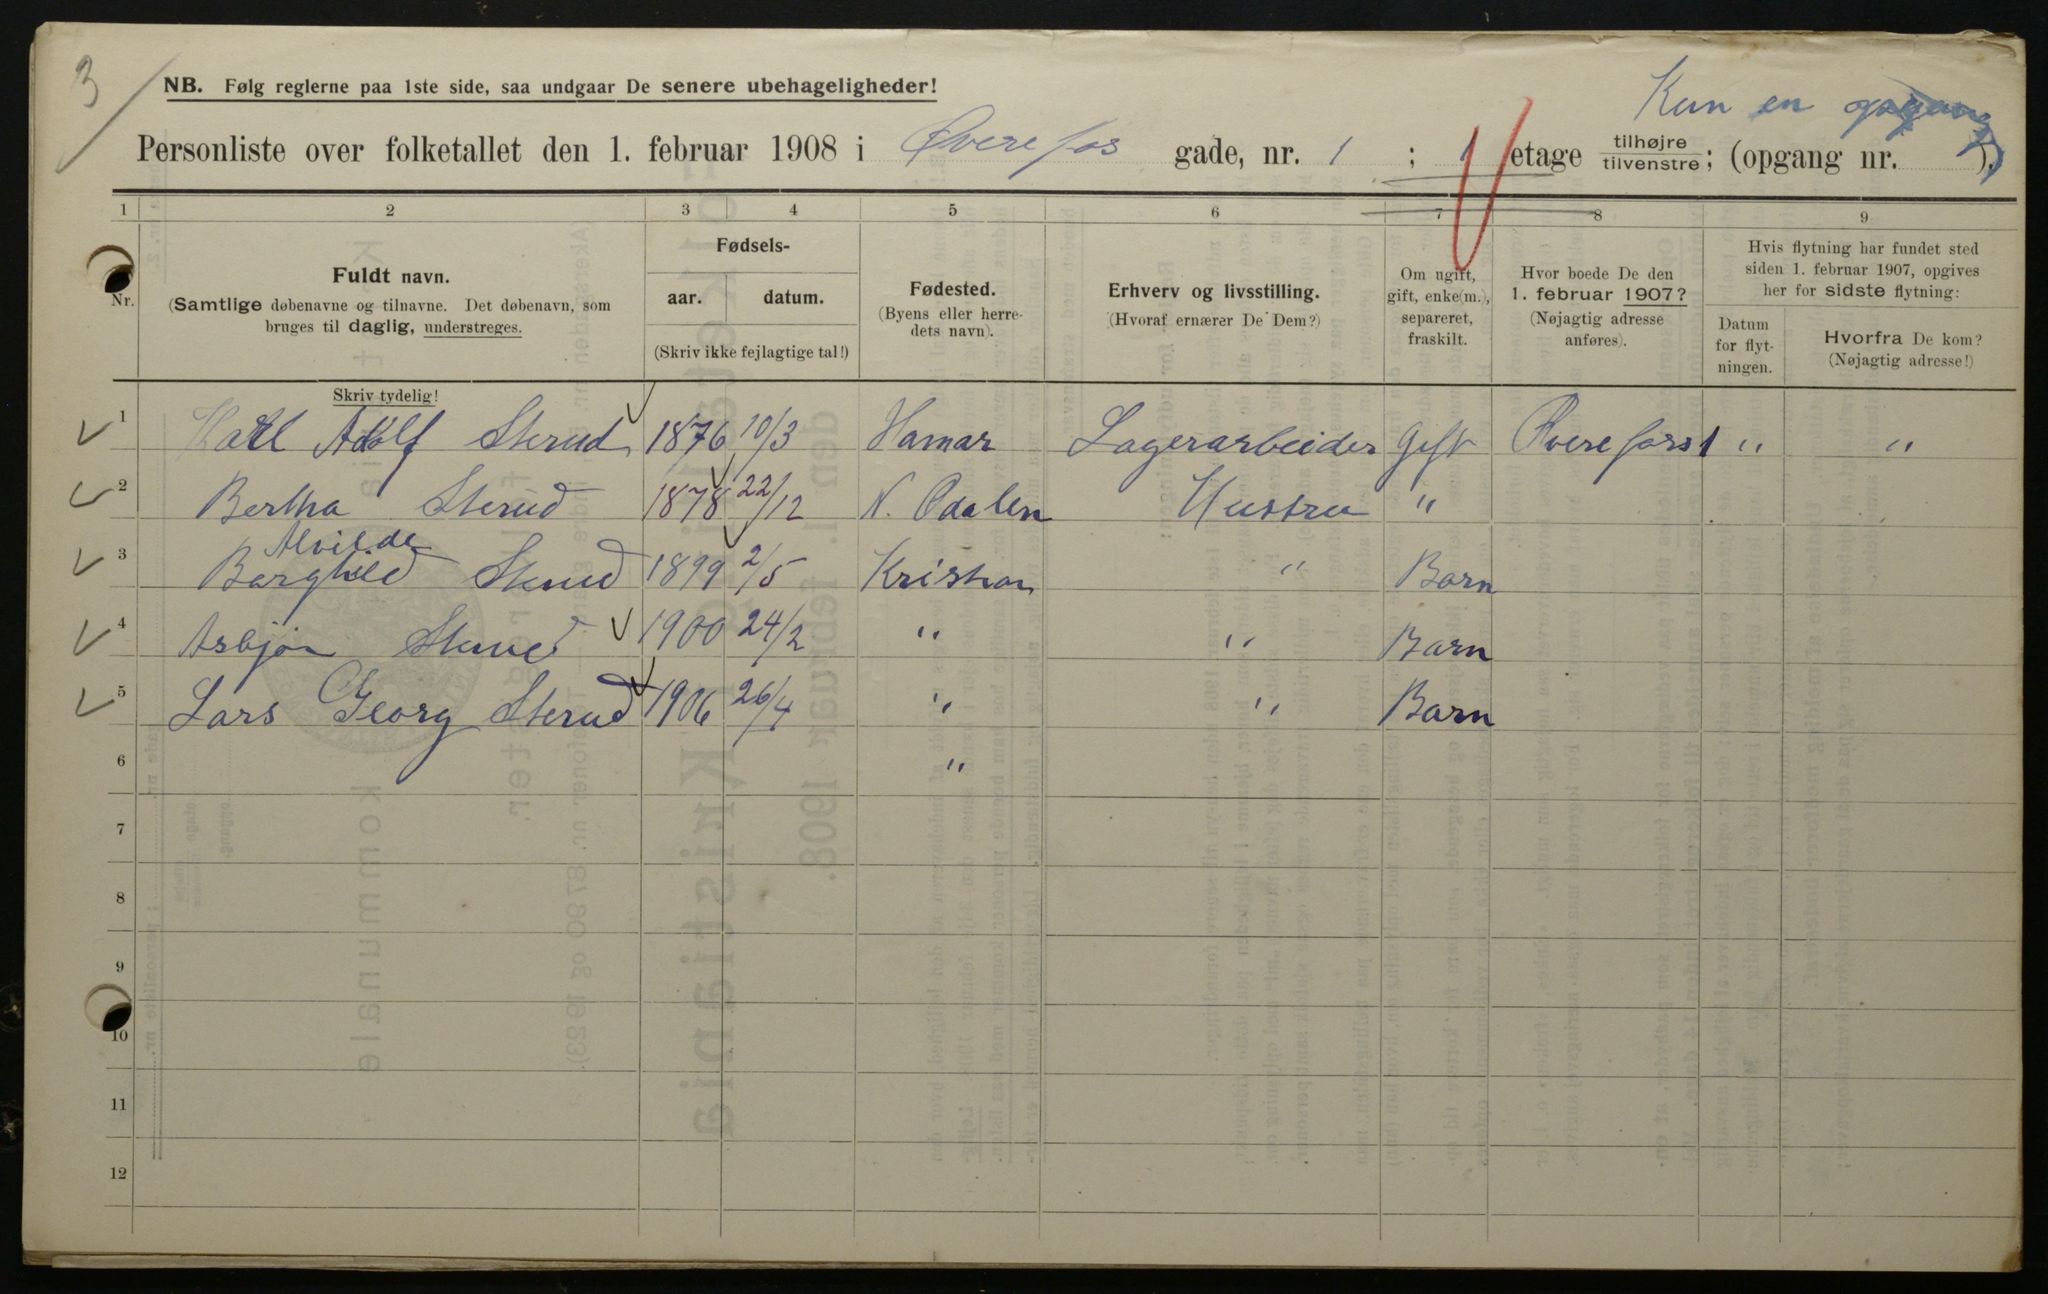 3
NB. Følg reglerne paa 1ste side, saa undgaar De senere ubehageligheder!
Kun en opgang
Personliste over folketallet den 1. februar 1908 i Øvere fos gade, nr. 1 ; 1 etage tilhøjre tilvenstre; (opgang nr. ).
1 2 3 4 5 6 7 8 9
Nr.
Fuldt navn.
(Samtlige døbenavne og tilnavne. Det døbenavn, som
bruges til daglig, understreges.
Skriv tydelig!
Fødsels-
aar. datum.
(Skriv ikke fejlagtige tal!)
Fødested.
(Byens eller herre-
dets navn).
Erhverv og livsstilling.
(Hvoraf ernærer De Dem?)
Om ugift,
gift, enke(m.),
separeret,
fraskilt.
Hvor boede De den
1. februar 1907?
(Nøjagtig adresse
anføres).
Hvis flytning har fundet sted
siden 1. februar 1907, opgives
her for sidste flytning:
Datum
for flyt-
ningen.
Hvorfra De kom?
(Nøjagtig adresse!)
1 Karl Adolf Sterud 1876 10/3 Hamar Lagerarbeider Gift Øvere fors 1 " "
2 Bertha Sterud 1878 22/12 N. Odalen Hustru "
Alvilde
3 Borghild Sterud 1899 2/5 Kristian " Barn
4 Asbjøn Sterud 1900 24/2 " " Barn
5 Lars Georg Sterud 1906 26/4 " " Barn
6 "
7
8
9
10
11
12